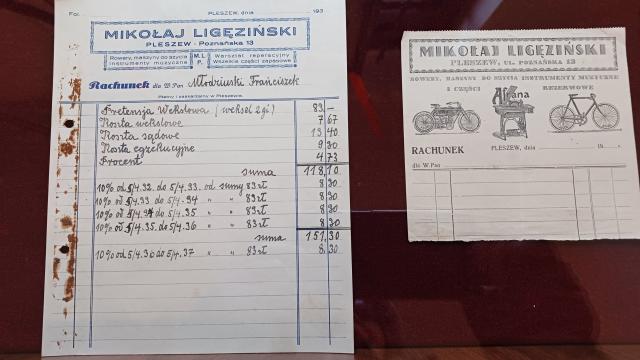 Fol.
PLESZEW, dnia 193
MIKOŁAJ LIGĘZIŃSKI
PLESZEW - Poznańska 13
Rowery, maszyny do szycia
instrumenty muzyczne
M.L.
P.
Warsztat reperacyjny
Wszelkie części zapasowe
Rachunek dla W Pan Młodziuski Franciszek
Płatny i zaskarżalny w Pleszewie.
Pretensja Wekslowa (weksel 2 gi) 83 —
Koszta wekslowe 7 67
Koszta sądowe 13 40
Koszta egzekucyjne 9 30
Procent 4 73
suma 118,10
10% od 5/4.32. do 5/4.33. od sumy 83 zł 8 30
10% od 5/4.33 do 5/4.34 " " 83 zł 8 30
10% od 5/4.34 do 5/4.35 " " 83 zł 8 30
10% od 5/4.35. do 5/4.36 " " 83 zł 8 30
suma 151,30
10% od 5/4.36 do 5/4.37 " " 83 zł 8 30
MIKOŁAJ LIGĘZIŃSKI
PLESZEW, UL. POZNAŃSKA 13
ROWERY, MASZYNY DO SZYCIA INSTRUMENTY MUZYCZNE
I CZĘŚCI REZERWOWE
RACHUNEK
PLESZEW, dnia 19
dla W-Pan